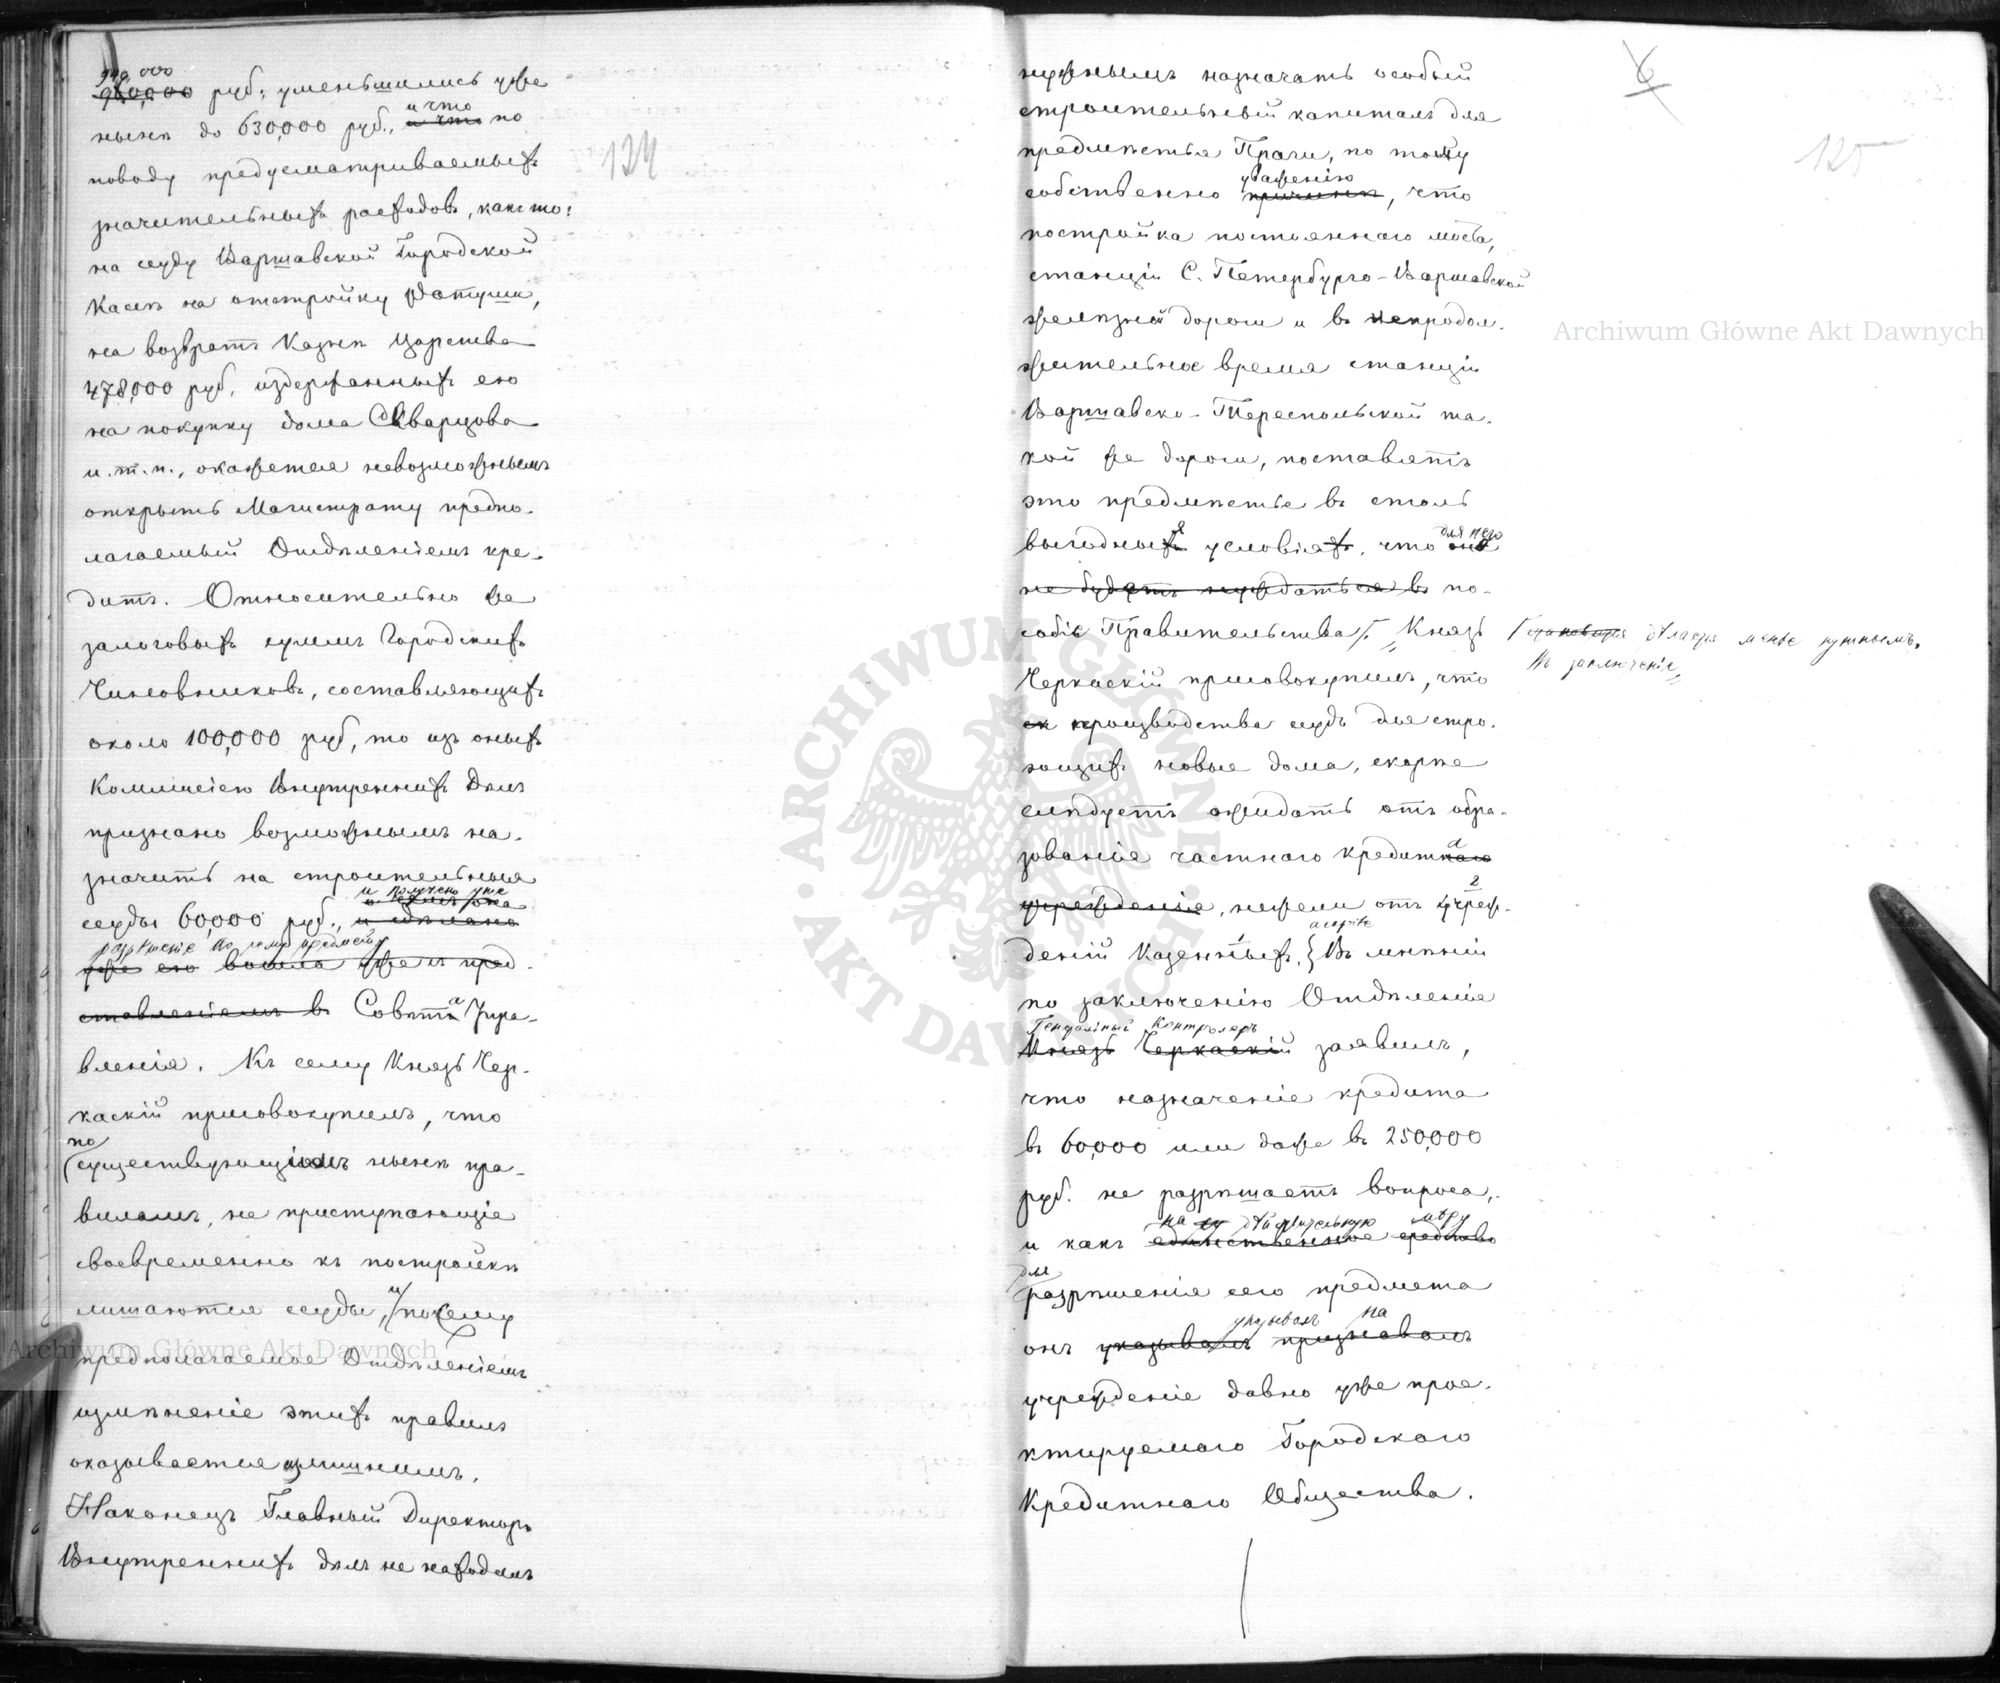 940,000
980,000 руб., уменьшились уже
нынѣ до 630,000 руб., и что по
поводу предусматриваемыхъ
значительныхъ расходовъ, какъ то:
на ссуду Варшавской Городской
Кассѣ на отстройку Ратуши,
на возвратъ Казнѣ Царства
478,000 руб. издержанныхъ ею
на покупку дома Скварцова
и. т. п., окажется невозможнымъ
открыть Магистрату предпо-
лагаемый Отдѣленіемъ кре-
дитъ. Относительно же
залоговыхъ суммъ Городскихъ
Чиновниковъ, составляющихъ
около 100,000 руб, то изъ оныхъ
Коммисіею Внутреннихъ Дѣлъ
признано возможнымъ на-
значить на строительныя
и получено уже
ссуды 60,000 руб., и сдѣлано
разрѣшеніе по сему предмету
уже ею вошла уже съ пред-
ставленіемъ въ Совѣта Упра-
вленія. Къ сему Князь Чер-
каскій присовокупилъ, что
по
существующимъ нынѣ пра-
виламъ, не приступающіе
своевременно къ постройкѣ
лишаются ссуды, и посему
предполагаемое Отдѣленіемъ
измѣненіе этихъ правилъ
оказывается излишнимъ.
Наконецъ Главный Директоръ
Внутреннихъ дѣлъ не находилъ
124
нужнымъ назначать особый
строительный капиталъ для
предмѣстья Праги, по тому
уваженію
собственно причинѣ, что
постройка постояннаго моста,
станціи С. Петербурго-Варшавской
желѣзной дороги и въ непродол-
жительное время станціи
Варшавско-Тереспольской та-
кой же дороги, поставятъ
это предмѣстье въ столь
для него
выгодныя условія, что оно
не будетъ нуждаться въ по-
собіе Правительства. Князь
становится дѣлается менѣе нужнымъ.
Въ заключеніе
Черкаскій присовокупилъ, что
производства ссудъ для стро-
ющихъ новые дома, скорѣе
слѣдуетъ ожидать отъ обра-
зованія частнаго кредитнаго
учрежденія, нежели отъ учреж-
деній Казенныхъ. Въ мнѣніи
по заключенію Отдѣленія
Генеральный Контролеръ
Князь Черкаскій заявилъ,
что назначеніе кредита
въ 60,000 или даже въ 250,000
руб. не разрѣшаетъ вопроса,
на дѣйствительную мѣру
и какъ единственное средство
для
разрѣшенія сего предмета
указывалъ на
онъ указывалъ признавалъ
учрежденіе давно уже прое-
ктируемаго Городскаго
Кредитнаго Общества.
6
125
Archiwum Główne Akt Dawnych
Archiwum Główne Akt Dawnych
ARCHIWUM GŁÓWNE AKT DAWNYCH